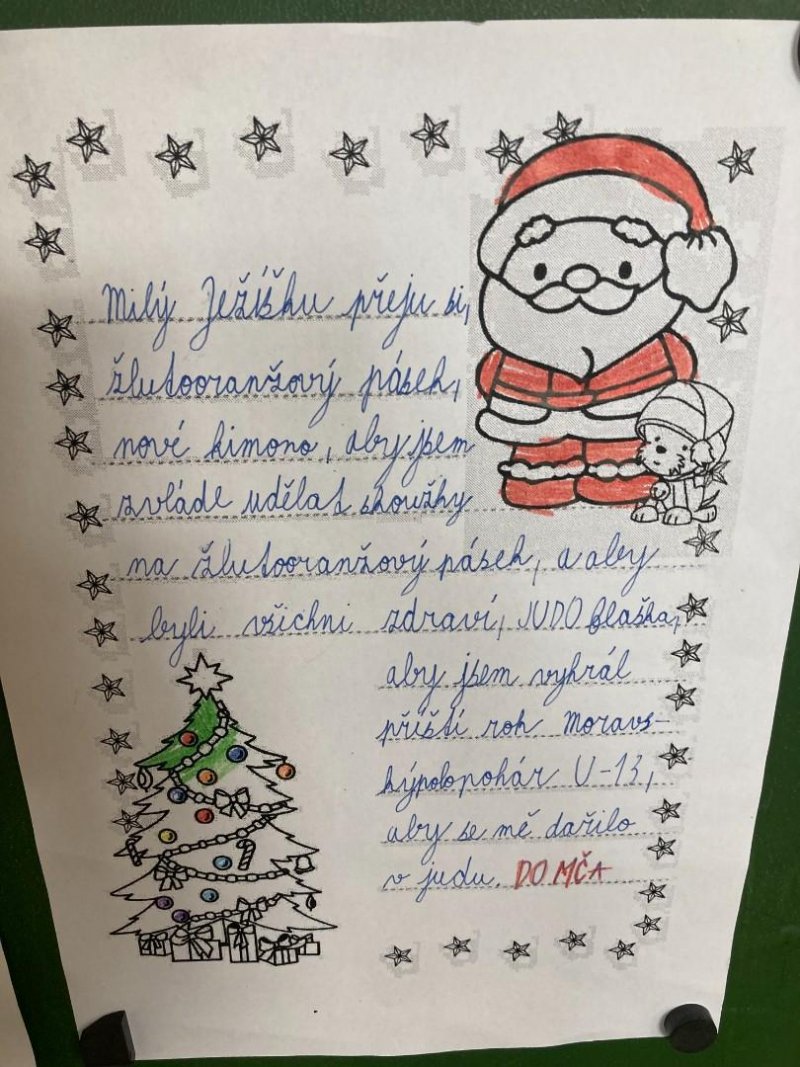 Milý Ježíšku přeju si,
žlutooranžový pásek,
nové kimono, aby jsem
zvláde udělat skoužky
na žlutooranžový pásek, a aby
byli všichni zdraví, JUDO flaška,
aby jsem vyhrál
příští rok Moravs-
kýpolopohár U-13,
aby se mě dařilo
v judu. DOMČA